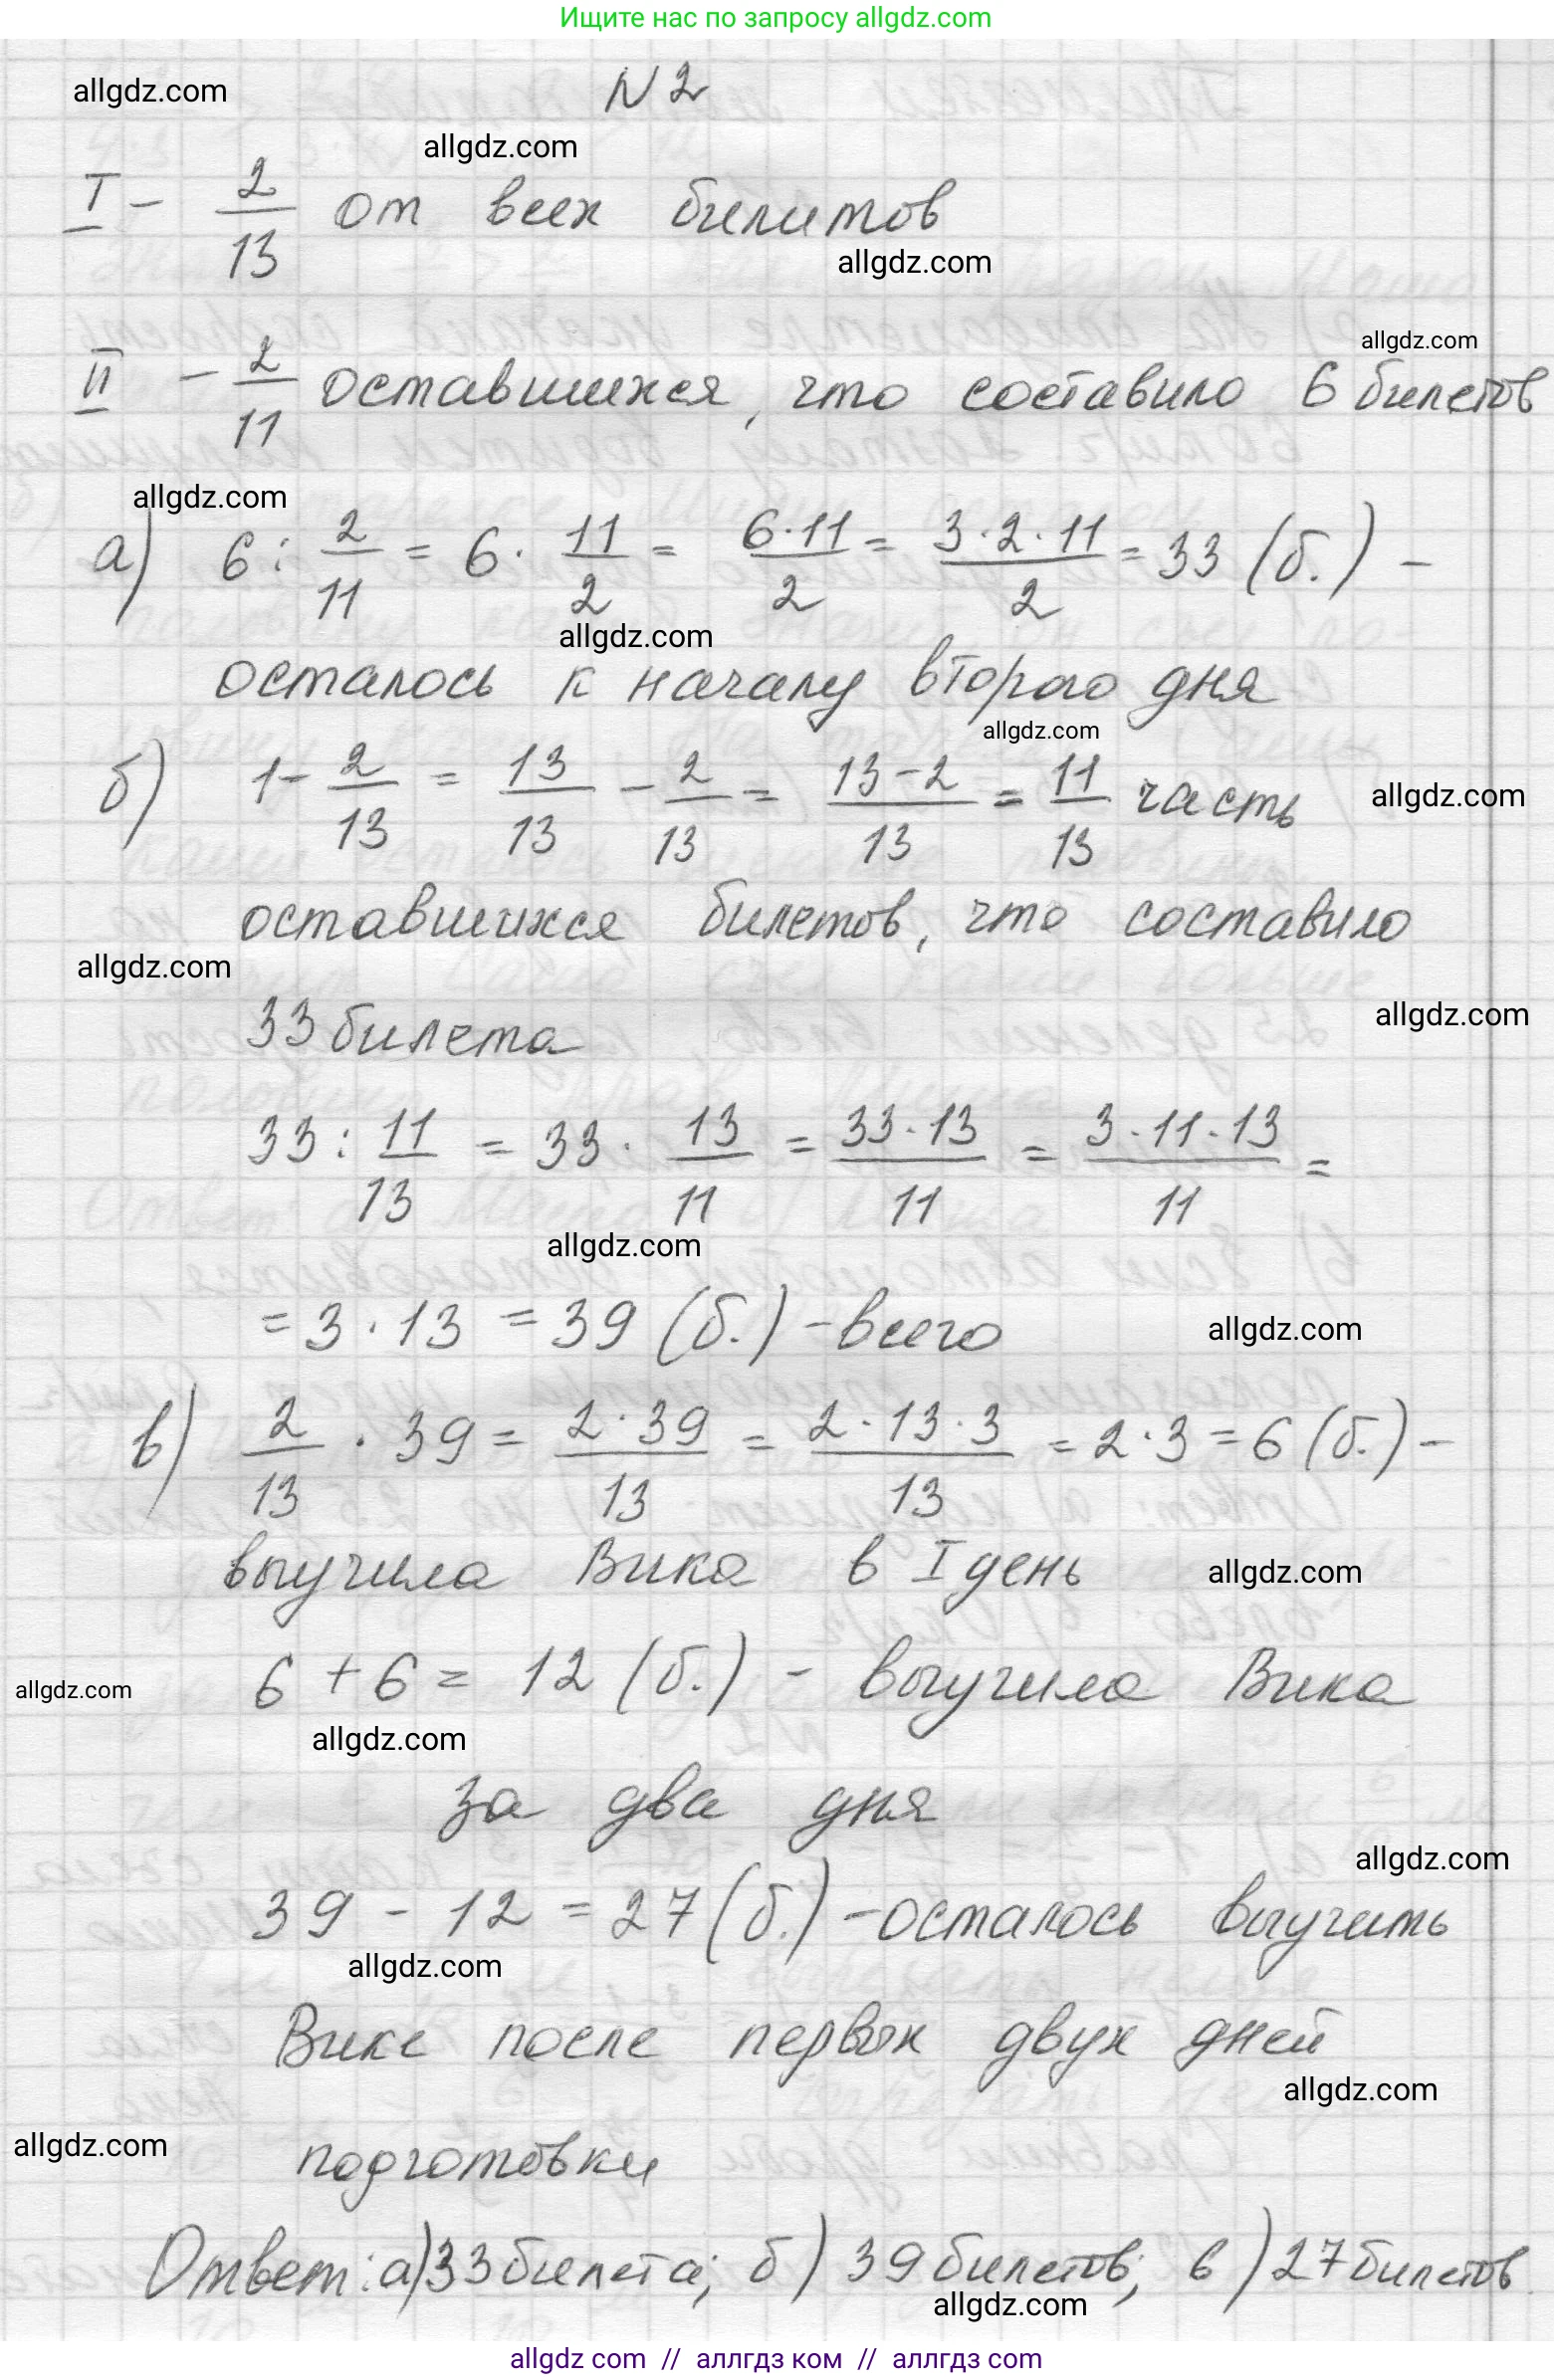 Ищите нас по запросу allgdz.com
allgdz.com
N 2
allgdz.com
I - 2/13 от всех билетов
allgdz.com
allgdz.com
II - 2/11 оставшихся, что составило 6 билетов
allgdz.com
а) 6 : 2/11 = 6 · 11/2 = 6·11/2 = 3·2·11/2 = 33 (б.) -
allgdz.com
осталось к началу второго дня
allgdz.com
б) 1 - 2/13 = 13/13 - 2/13 = 13-2/13 = 11/13 часть
allgdz.com
оставшихся билетов, что составило
allgdz.com
33 билета
allgdz.com
33 : 11/13 = 33 · 13/11 = 33·13/11 = 3·11·13/11 =
allgdz.com
= 3 · 13 = 39 (б.) - всего
allgdz.com
в) 2/13 · 39 = 2·39/13 = 2·13·3/13 = 2·3 = 6 (б.) -
выучила Вика в I день
allgdz.com
6 + 6 = 12 (б.) - выучила Вика
allgdz.com
allgdz.com
за два дня
allgdz.com
39 - 12 = 27 (б.) - осталось выучить
allgdz.com
Вике после первых двух дней
allgdz.com
allgdz.com
подготовки
Ответ: а) 33 билета; б) 39 билетов; в) 27 билетов.
allgdz.com
allgdz com // аллгдз ком // аллгдз com